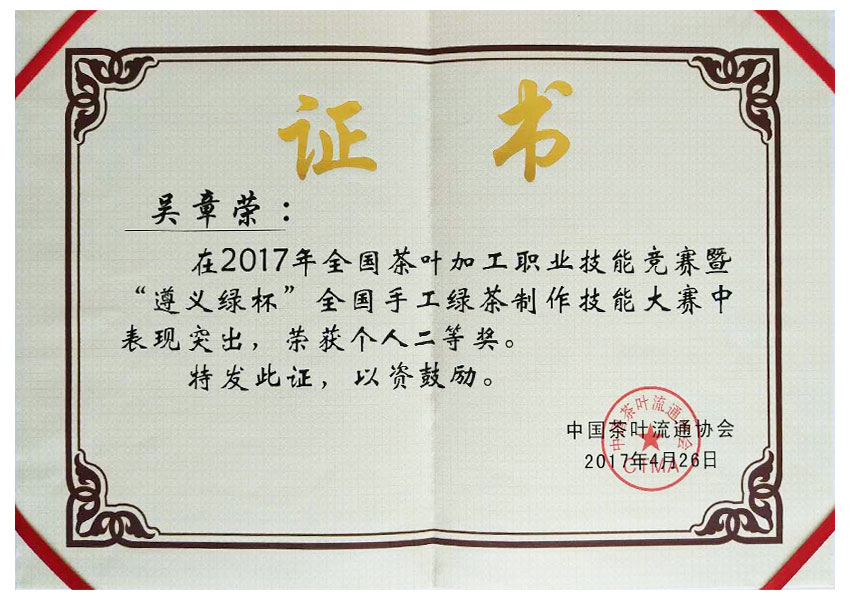 证 书
吴章荣：
在2017年全国茶叶加工职业技能竞赛暨
“遵义绿杯”全国手工绿茶制作技能大赛中
表现突出，荣获个人二等奖。
特发此证，以资鼓励。
中国茶叶流通协会
2017年4月26日
中国茶叶流通协会
CTMA